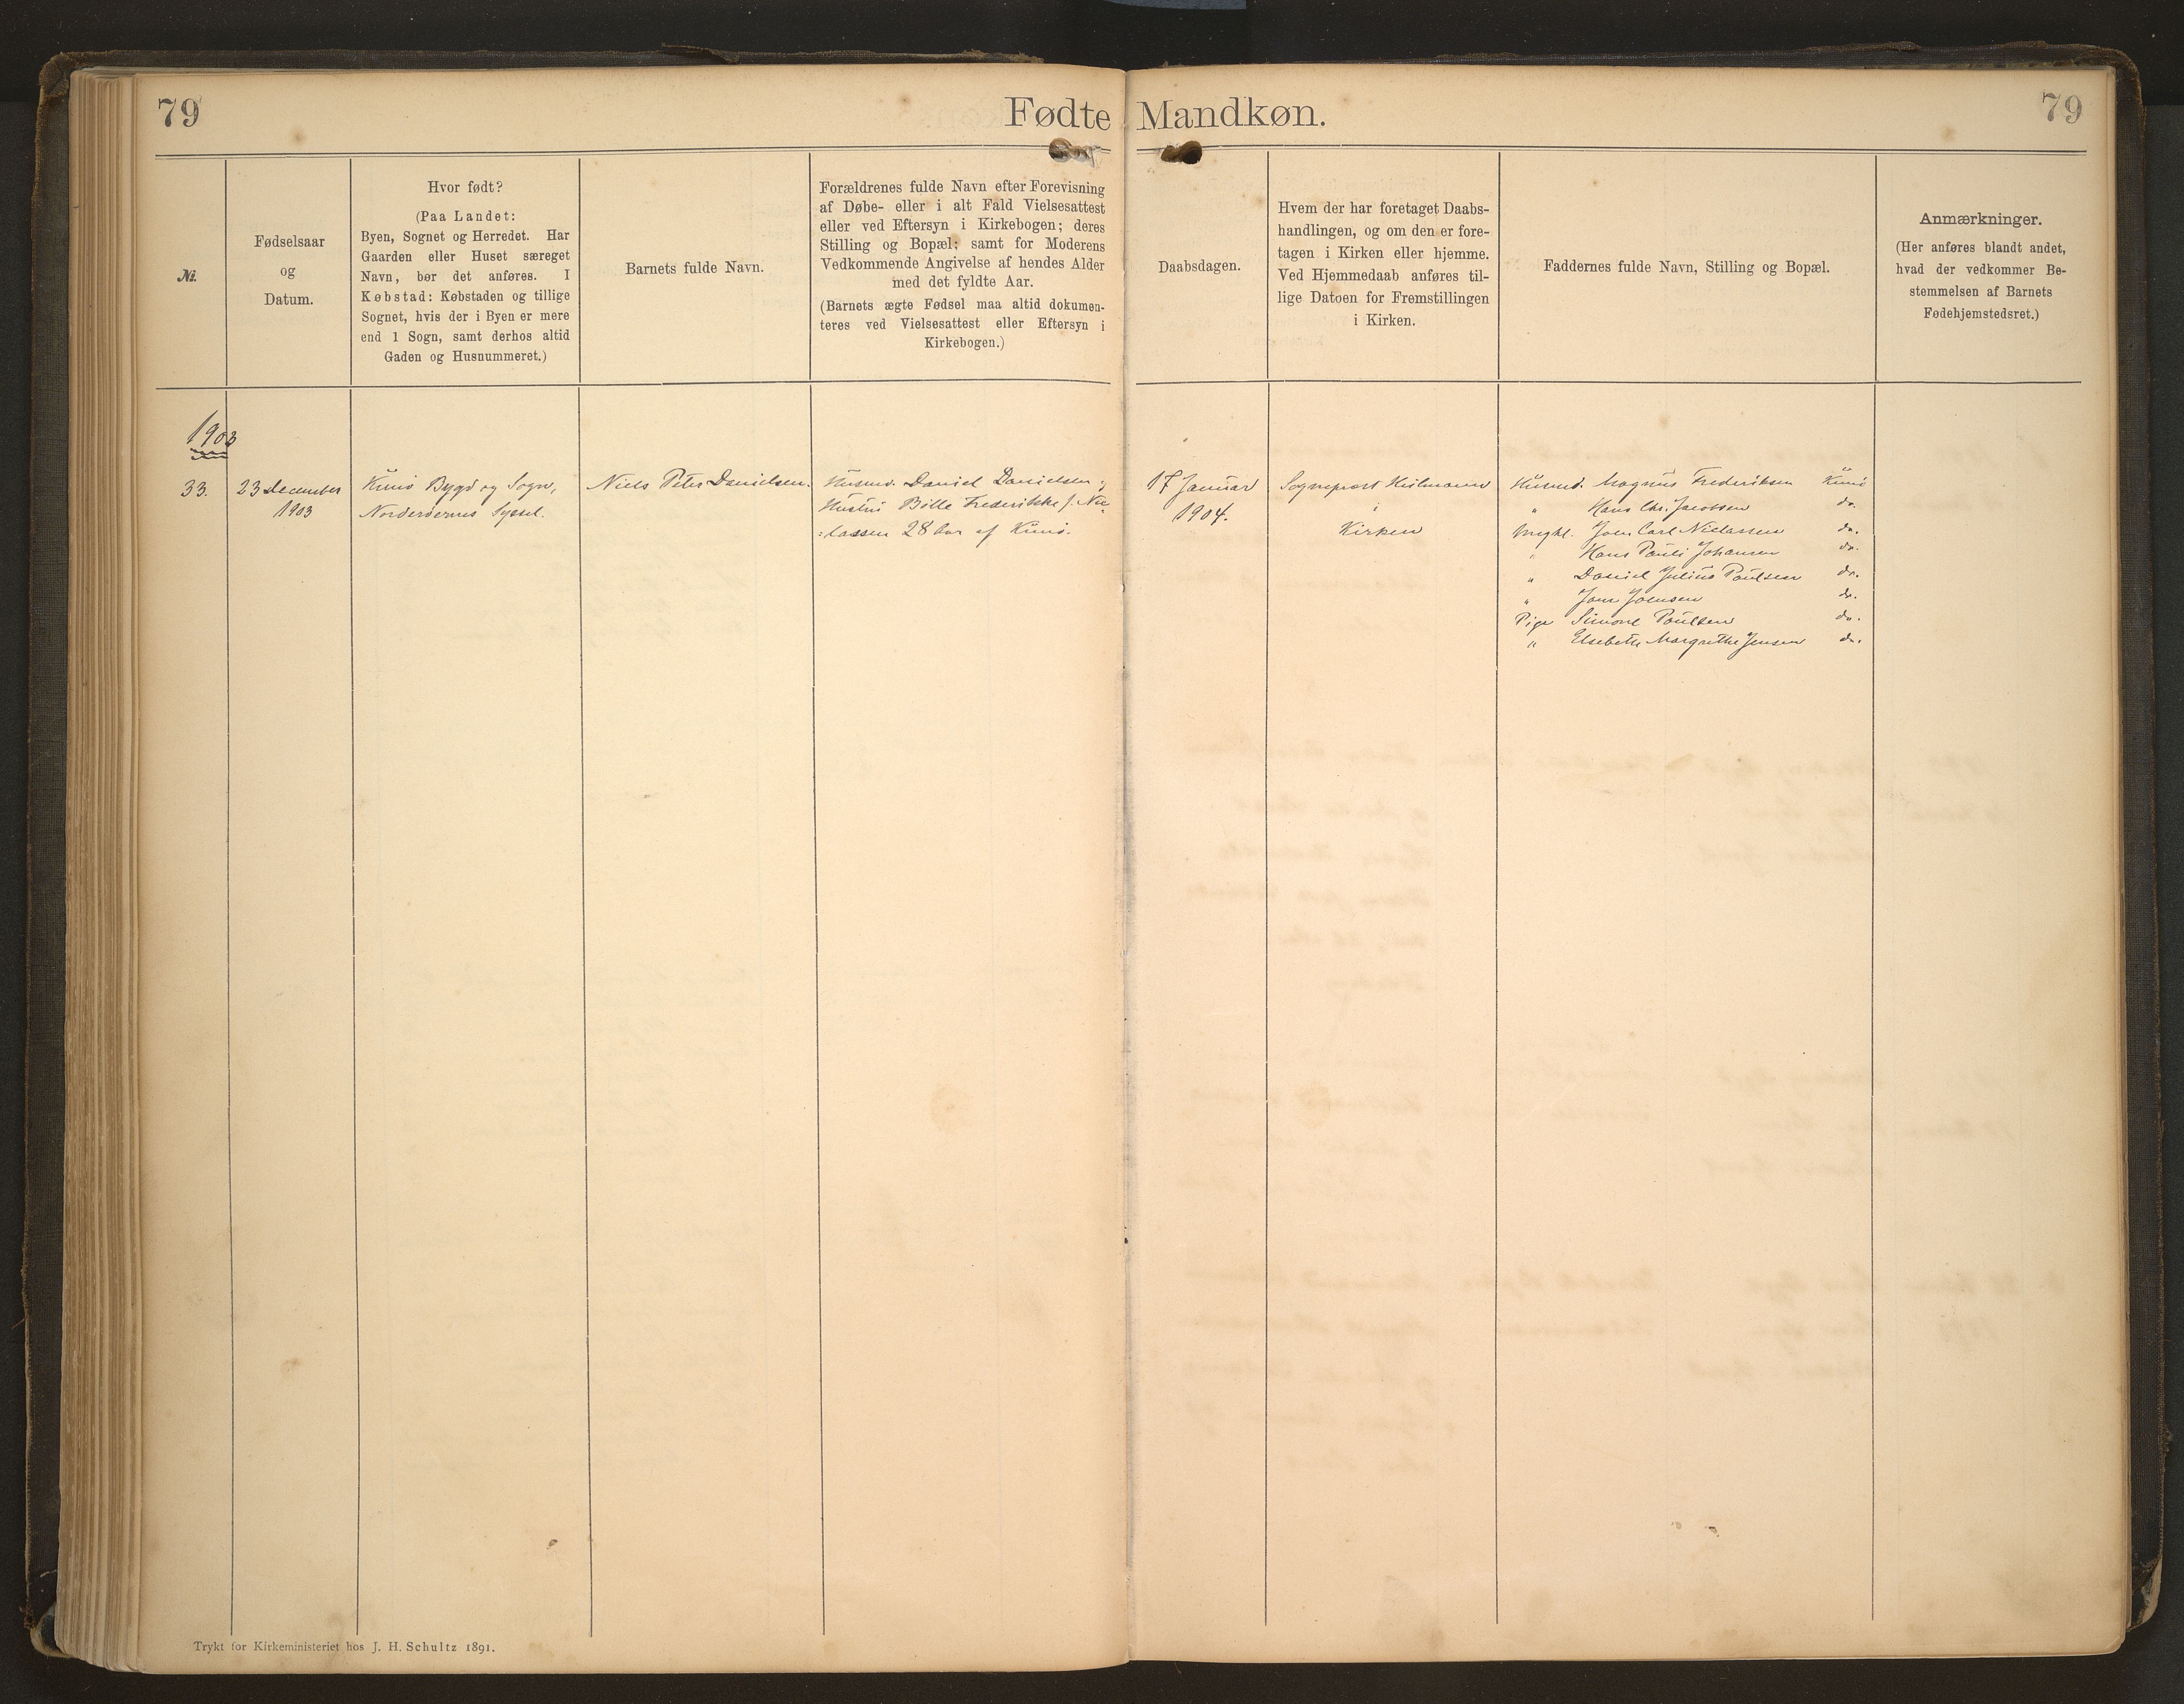 79
Fødte Mandkøn.
79
Nr.
Fødselsaar
og
Datum.
Hvor født?
(Paa Landet:
Byen, Sognet og Herredet. Har
Gaarden eller Huset særeget
Navn, bør det anføres. I
Købstad: Købstaden og tillige
Sognet, hvis der i Byen er mere
end 1 Sogn, samt derhos altid
Gaden og Husnummeret.)
Barnets fulde Navn.
Forældrenes fulde Navn efter Forevisning
af Døbe- eller i alt Fald Vielsesattest
eller ved Eftersyn i Kirkebogen; deres
Stilling og Bopæl; samt for Moderens
Vedkommende Angivelse af hendes Alder
med det fyldte Aar.
(Barnets ægte Fødsel maa altid dokumen-
teres ved Vielsesattest eller Eftersyn i
Kirkebogen.)
Daabsdagen.
Hvem der har foretaget Daabs-
handlingen, og om den er fore-
tagen i Kirken eller hjemme.
Ved Hjemmedaab anføres til-
lige Datoen for Fremstillingen
i Kirken.
Faddernes fulde Navn, Stilling og Bopæl.
Anmærkninger.
(Her anføres blandt andet,
hvad der vedkommer Be-
stemmelsen af Barnets
Fødehjemstedsret.)
1903
33.
23 december
1903
Kunø Bygd og Sogn,
Norderøernes Syssel.
Niels Peter Danielsen.
Husmd. Daniel Danielsen og
Hustru Bille Frederikke f. Nic-
:lassen 28 Aar af Kunø.
17 Januar
1904.
Sognepræst Heilmann
i
Kirken
Husmd. Magnus Frederiksen Kunø
" Hans Chr. Jacobsen do.
Ungkl. Joen Carl Niclassen do.
" Hans Pauli Johansen do.
" Daniel Julius Poulsen do.
" Jens Joensen do.
Pige Simone Poulsen do.
" Elsebeth Margrethe Jensen do.
Trykt for Kirkeministeriet hos J. H. Schultz 1891.